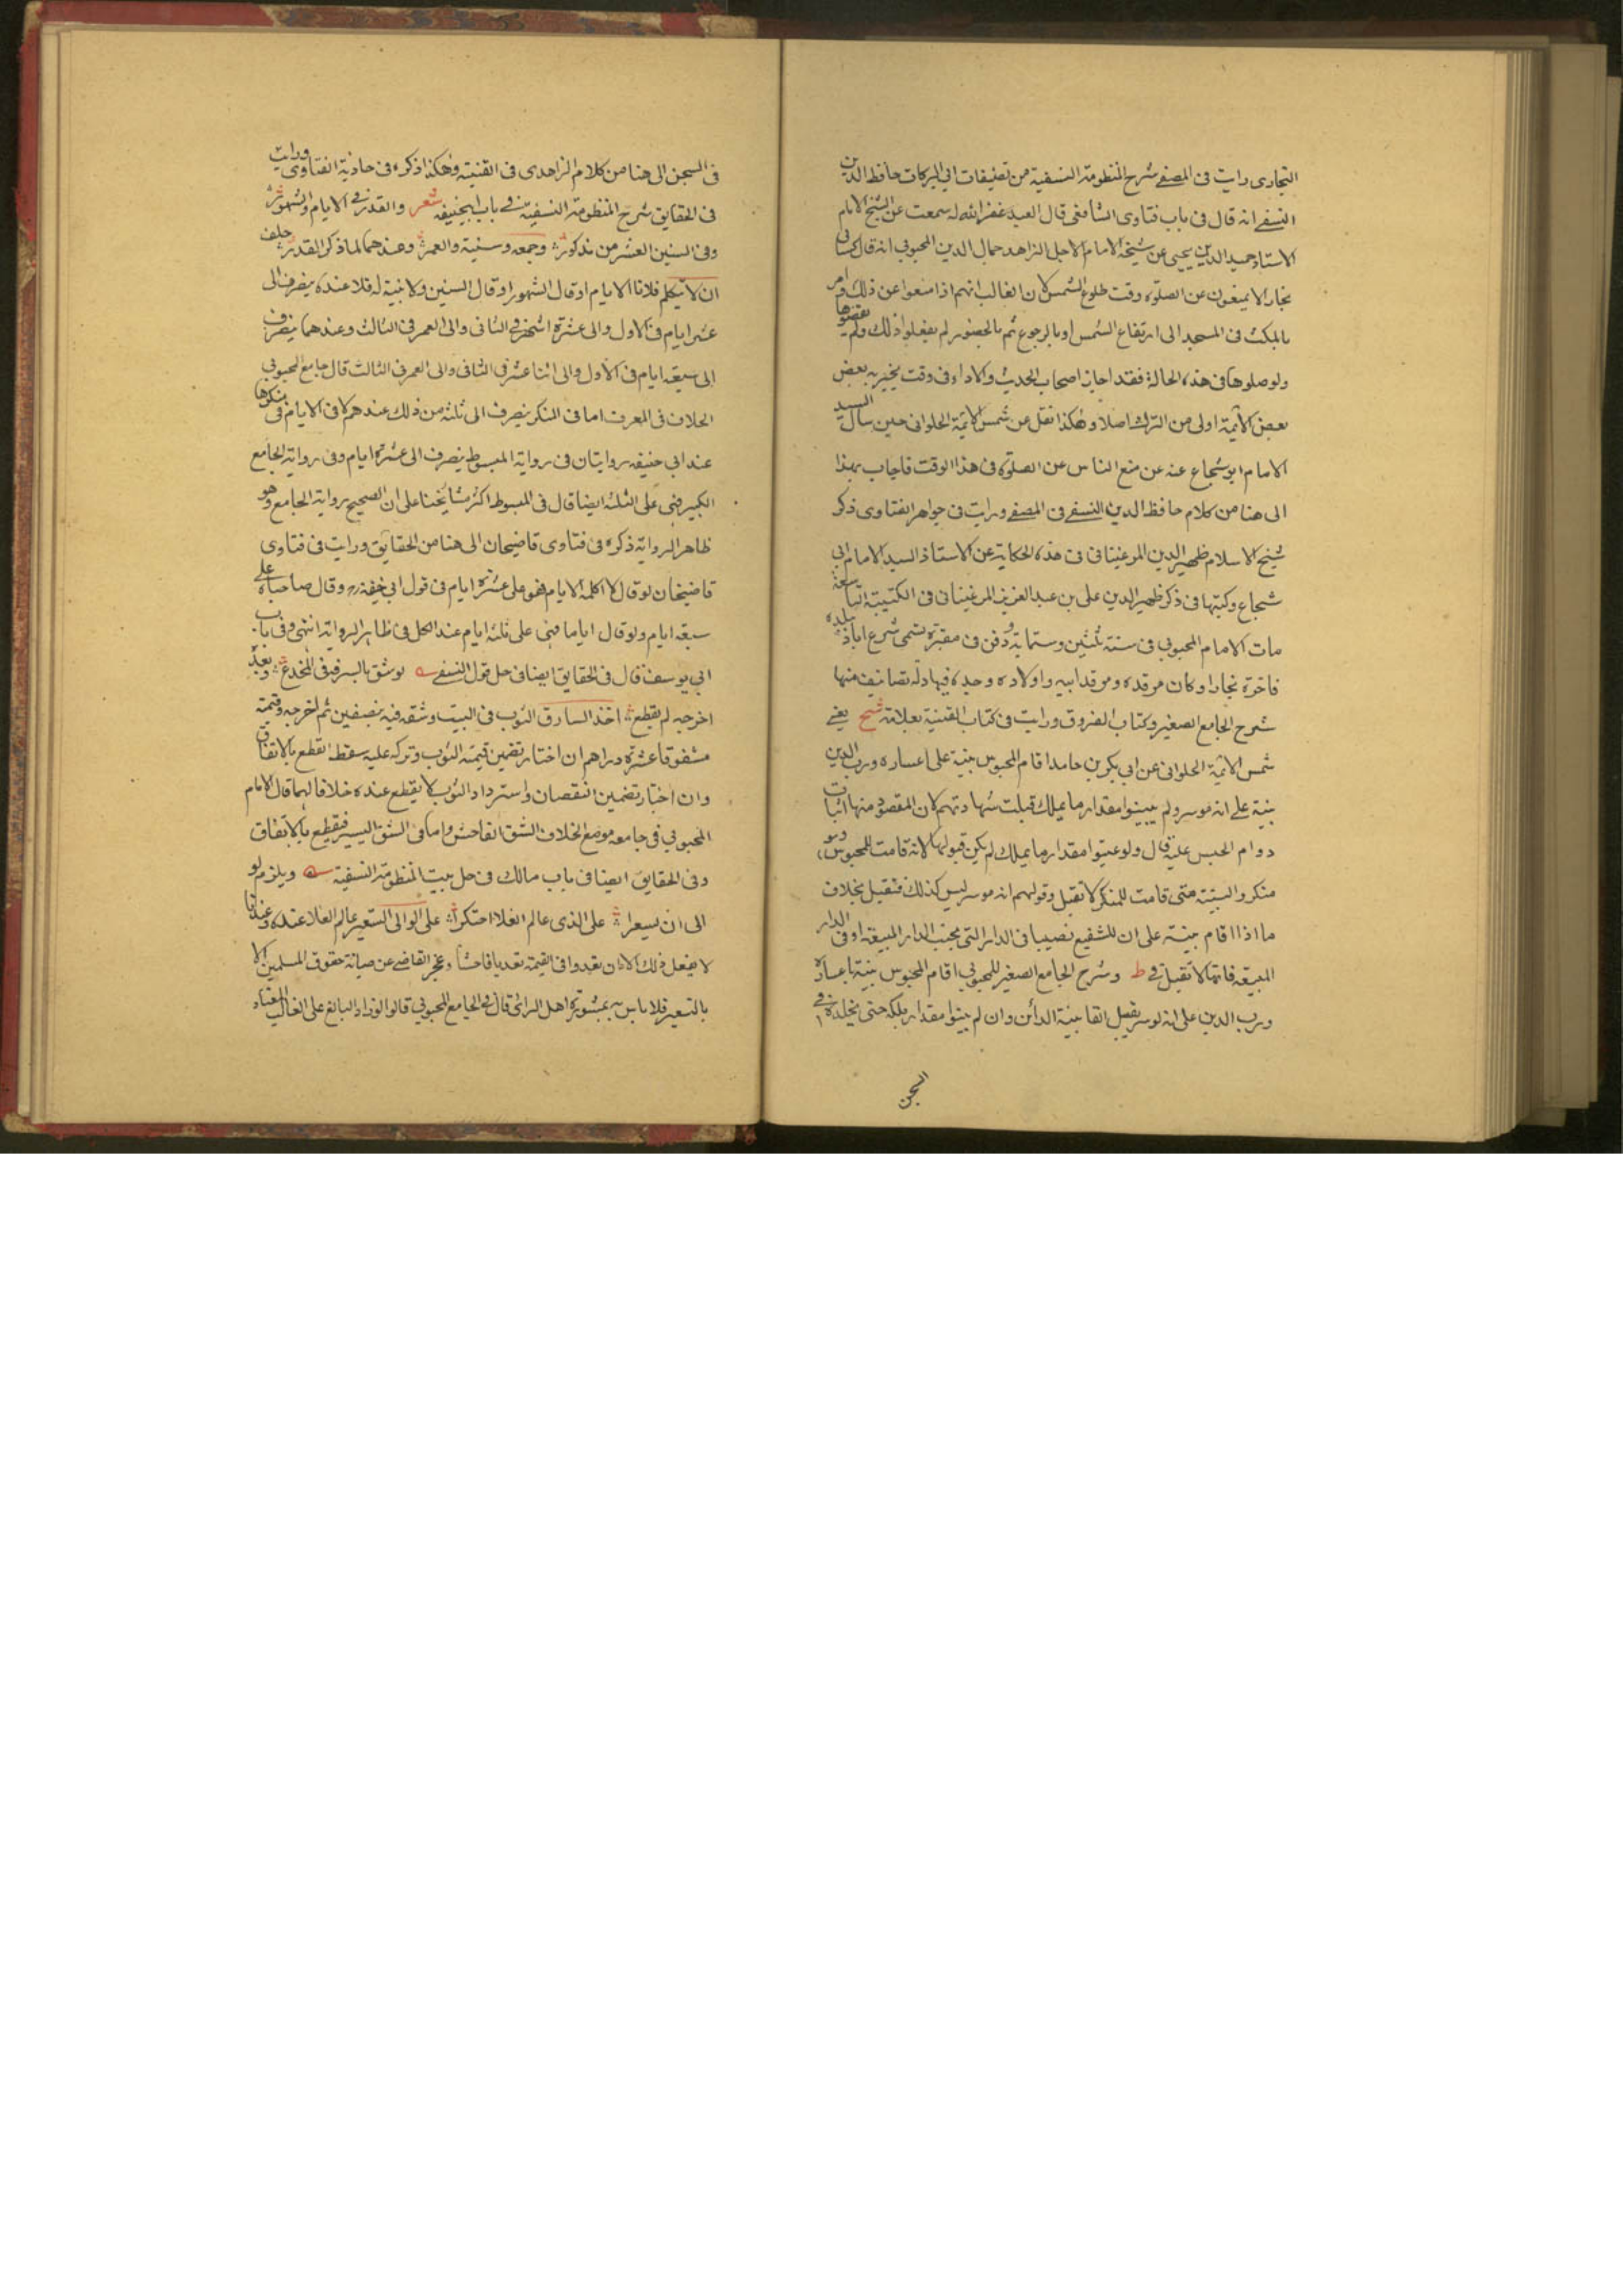 البخاری رایت فی المصفے شرح المنظومة النسفیة من تصنیفات ابی البرکات حافظ الدین
النسفے انه قال فی باب فتاوی الشافعی قال العبد غفر الله له سمعت عن الشیخ الامام
الاستاد حمید الدین یحیی عن شیخه الامام الاجل الزاهد جمال الدین المحبوبی انه قال کسالی
بخارا لا یمنعون عن الصلوة وقت طلوع الشمس لان الغالب انهم اذا منعوا عن ذلك وامر
بالمکث فی المسجد الی ارتفاع الشمس او بالرجوع ثم بالحضور لم یفعلوا ذلك ولم یقضوها
ولو صلوها فی هذه الحالة فقد اجاز اصحاب الحدیث والاداء فی وقت یجیزه بعض
بعض الائمة اولی من الترك اصلا وهکذا نقل عن شمس الائمة الحلوانی حین سال السید
الامام ابو شجاع عنه عن منع الناس عن الصلوة فی هذا الوقت فاجاب بهذا
الی هنا من کلام حافظ الدین النسفے فی المصفے ورایت فی جواهر الفتاوی ذکر
شیخ الاسلام ظهیر الدین المرغینانی فی هذه الحکایة عن الاستاذ السید الامام ابی
شجاع وکتبها فی ذکر ظهیر الدین علی بن عبد العزیز المرغینانی فی الکتیبة التاسعة
مات الامام المحبوبی فی سنة ثلثین وستمایة ودفن فی مقبرة تسمی شرع اباد ببلدة
فاخرة بخارا وکان مرقده ومرقد ابیه واولاده وجده فیها وله تصانیف منها
شرح الجامع الصغیر وکتاب الفروق ورایت فی کتاب القنیة بعلامة شح یعنے
شمس الائمة الحلوانی عن ابی بکر بن حامد اقام المحبوس بینة علی اعساره ورب الدین
بینة علے انه موسر ولم یبینوا مقدار ما یملك قبلت شهادتهم لان المقصود منها اثبات
دوام الحبس علیه قال ولو عینوا مقدار ما یملك لم یکن قبولها لانه قامت للمحبوس وهو
منکر والبینة متی قامت للمنکر لا تقبل وقولهم انه موسر لیس کذلك فتقبل بخلاف
ما اذا اقام بینة علی ان للشفیع نصیبا فی الدار التی بجنب الدار المبیعة او فی الدار
المبیعة فانها لا تقبل وفی ط وشرح الجامع الصغیر للمحبوبی اقام المحبوس بینة باعساره
ورب الدین علی انه موسر یقبل القا بینة الدائن وان لم یبینوا مقدار ملکه حتی یخلده فی
السجن
فی السجن الی هنا من کلام الزاهدی فی القنیة وهکذا ذکره فی حادیة الفتاوی ورایت
فی الحقایق شرح المنظومة النسفیة فے باب ابیحنیفة شعر والقدر فی الایام والشهور
وفی السنین العشر من مذکور وجمعه وسنیة والعمر وعندهما لما ذکر القدر حلف
ان لا یکلم فلانا الایام او قال الشهور او قال السنین ولا نیة له فلا عنده ینصرف الی
عشر ایام فی الاول والی عشرة اشهر فی الثانی والی العمر فی الثالث وعندهما ینصرف
الی سبعة ایام فی الاول والی اثنا عشر فی الثانی والی العمر فی الثالث قال جامع المحبوبی
الخلاف فی المعرف اما فی المنکر ینصرف الی ثلثة من ذلك عندهم کما فی الایام فی منکرها
عند ابی حنیفة روایتان فی روایة المبسوط ینصرف الی عشرة ایام وفی روایة الجامع
الکبیر فهی علی الثلثة ایضا قال فی المبسوط اکثر مشایخنا علی ان الصحیح روایة الجامع وهو
ظاهر الروایة ذکره فی فتاوی قاضیخان الی هنا من الحقایق ورایت فی فتاوی
قاضیخان لو قال لا اکلمه الایام فهو علی عشرة ایام فی قول ابی حنیفة ره وقال صاحباه علے
سبعة ایام ولو قال ایاما فهی علی ثلثة ایام عند الکل فی ظاهر الروایة انتهی وفی باب
ابی یوسف قال فی الحقایق ایضا فی حل قول النسفے لو شق بالسرقة فی المخدع وبعد
اخرجه لم یقطع اخذ السارق الثوب فی البیت وشقه فیه بنصفین ثم اخرجه وقیمته
مشقوقا عشرة دراهم ان اختار تضمین قیمة الثوب وترکه علیه سقط القطع بالاتفاق
وان اختار تضمین النقصان واسترداد الثوب لا یقطع عنده خلافا لهما قال الامام
المحبوبی فی جامعه موضع الخلاف الشق الفاحش واما فی الشق الیسیر فیقطع بالاتفاق
وفی الحقایق ایضا فی باب مالك فی حل بیت المنظومة النسفیة ویلزم لو
الی ان یسعرا علی الذی عالم الغلا احتکرا علی الوالی التسعیر عالم الغلا عنده وعندنا
لا یفعل ذلك الا ان تعدوا فی القیمة تعدیا فاحشا وعجز القاضے عن صیانة حقوق المسلمین الا
بالتسعیر فلا باس به بمشورة اهل الرای قال فی الجامع المحبوبی قالوا لو زاد البائع علی الغالب المعتاد